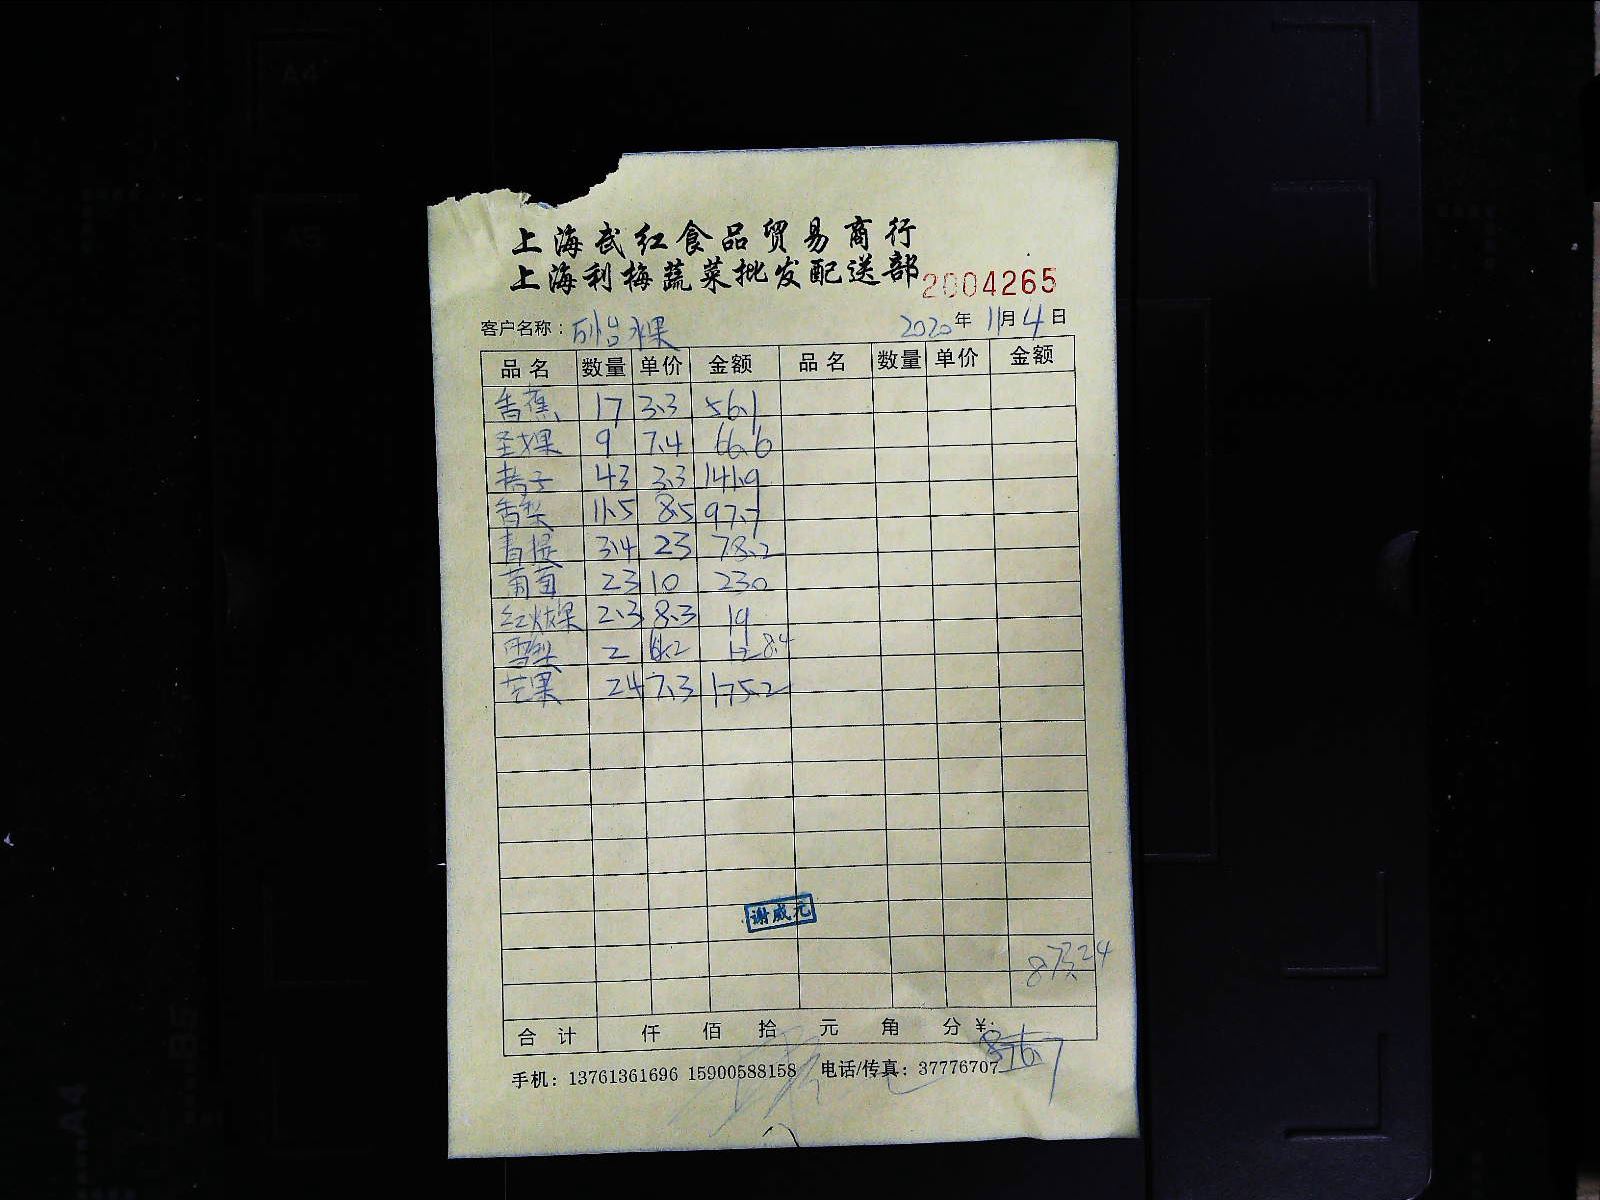 上海武红食品贸易商行
上海利梅蔬菜批发配送部 2004265
客户名称： 水果 2020年 11月 4日
品名 数量 单价 金额 品名 数量 单价 金额
香蕉 17 3.3 56.1
圣女果 9 7.4 66.6
桔子 43 3.3 141.9
香梨 11.5 8.5 97.7
青提 3.4 23 78.2
葡萄 23 10 230
红火龙果 2.3 8.3 19
雪梨 2 4.2 8.4
芒果 24 7.3 175.2
谢威元
873.24
合计 仟 佰 拾 元 角 分 ¥: 876.7
手机：13761361696 15900588158 电话/传真：37776707